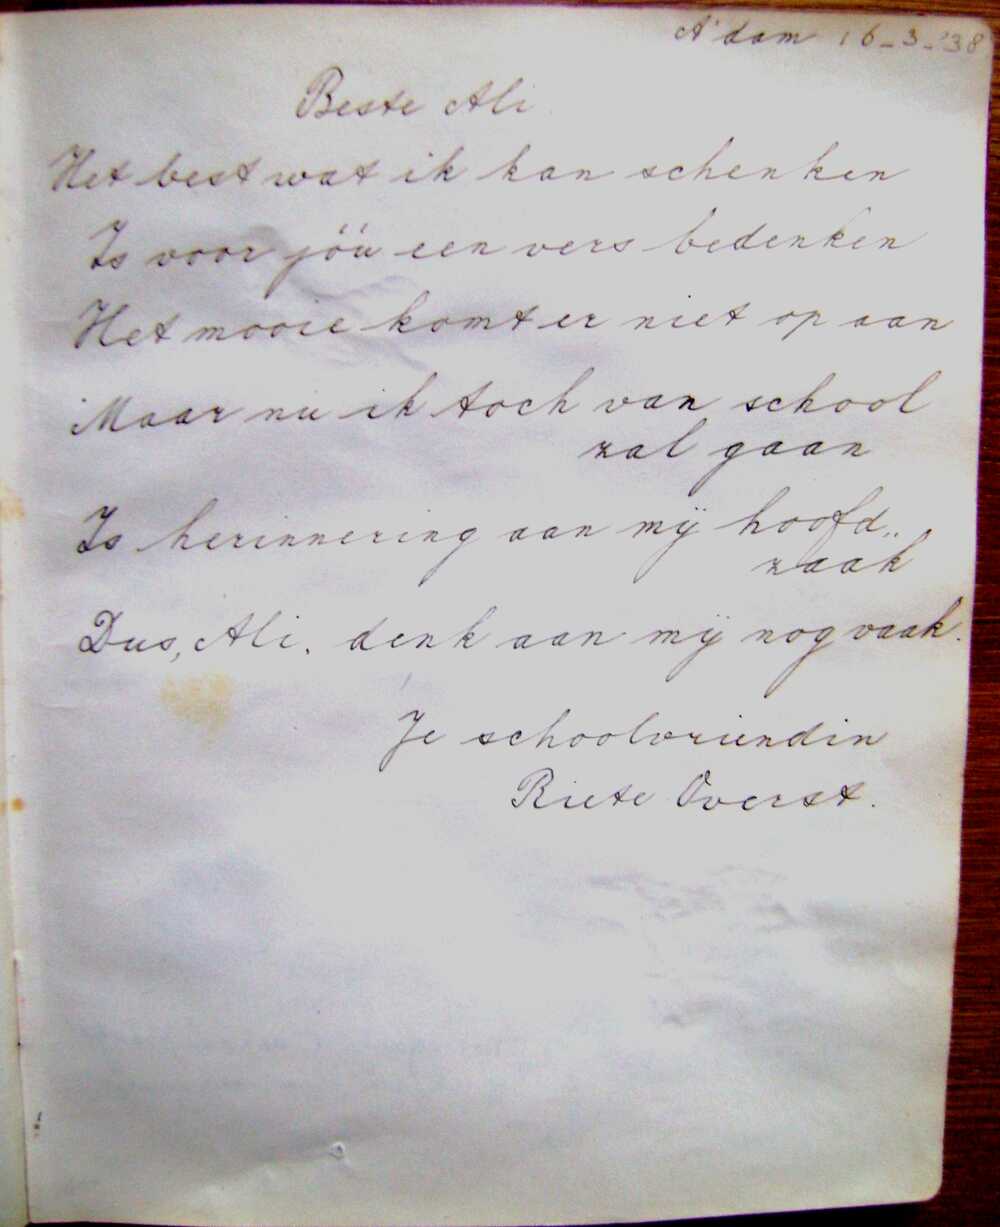 A'dam 16-3-'38
Beste Ali
Het best wat ik kan schenken
Is voor jóú een vers bedenken
Het mooie komt er niet op aan
Maar nu ik toch van school
zal gaan
Is herinnering aan mij hoofd„
zaak
Dus, Ali, denk aan mij nog vaak.
Je schoolvriendin
Riete Overst.